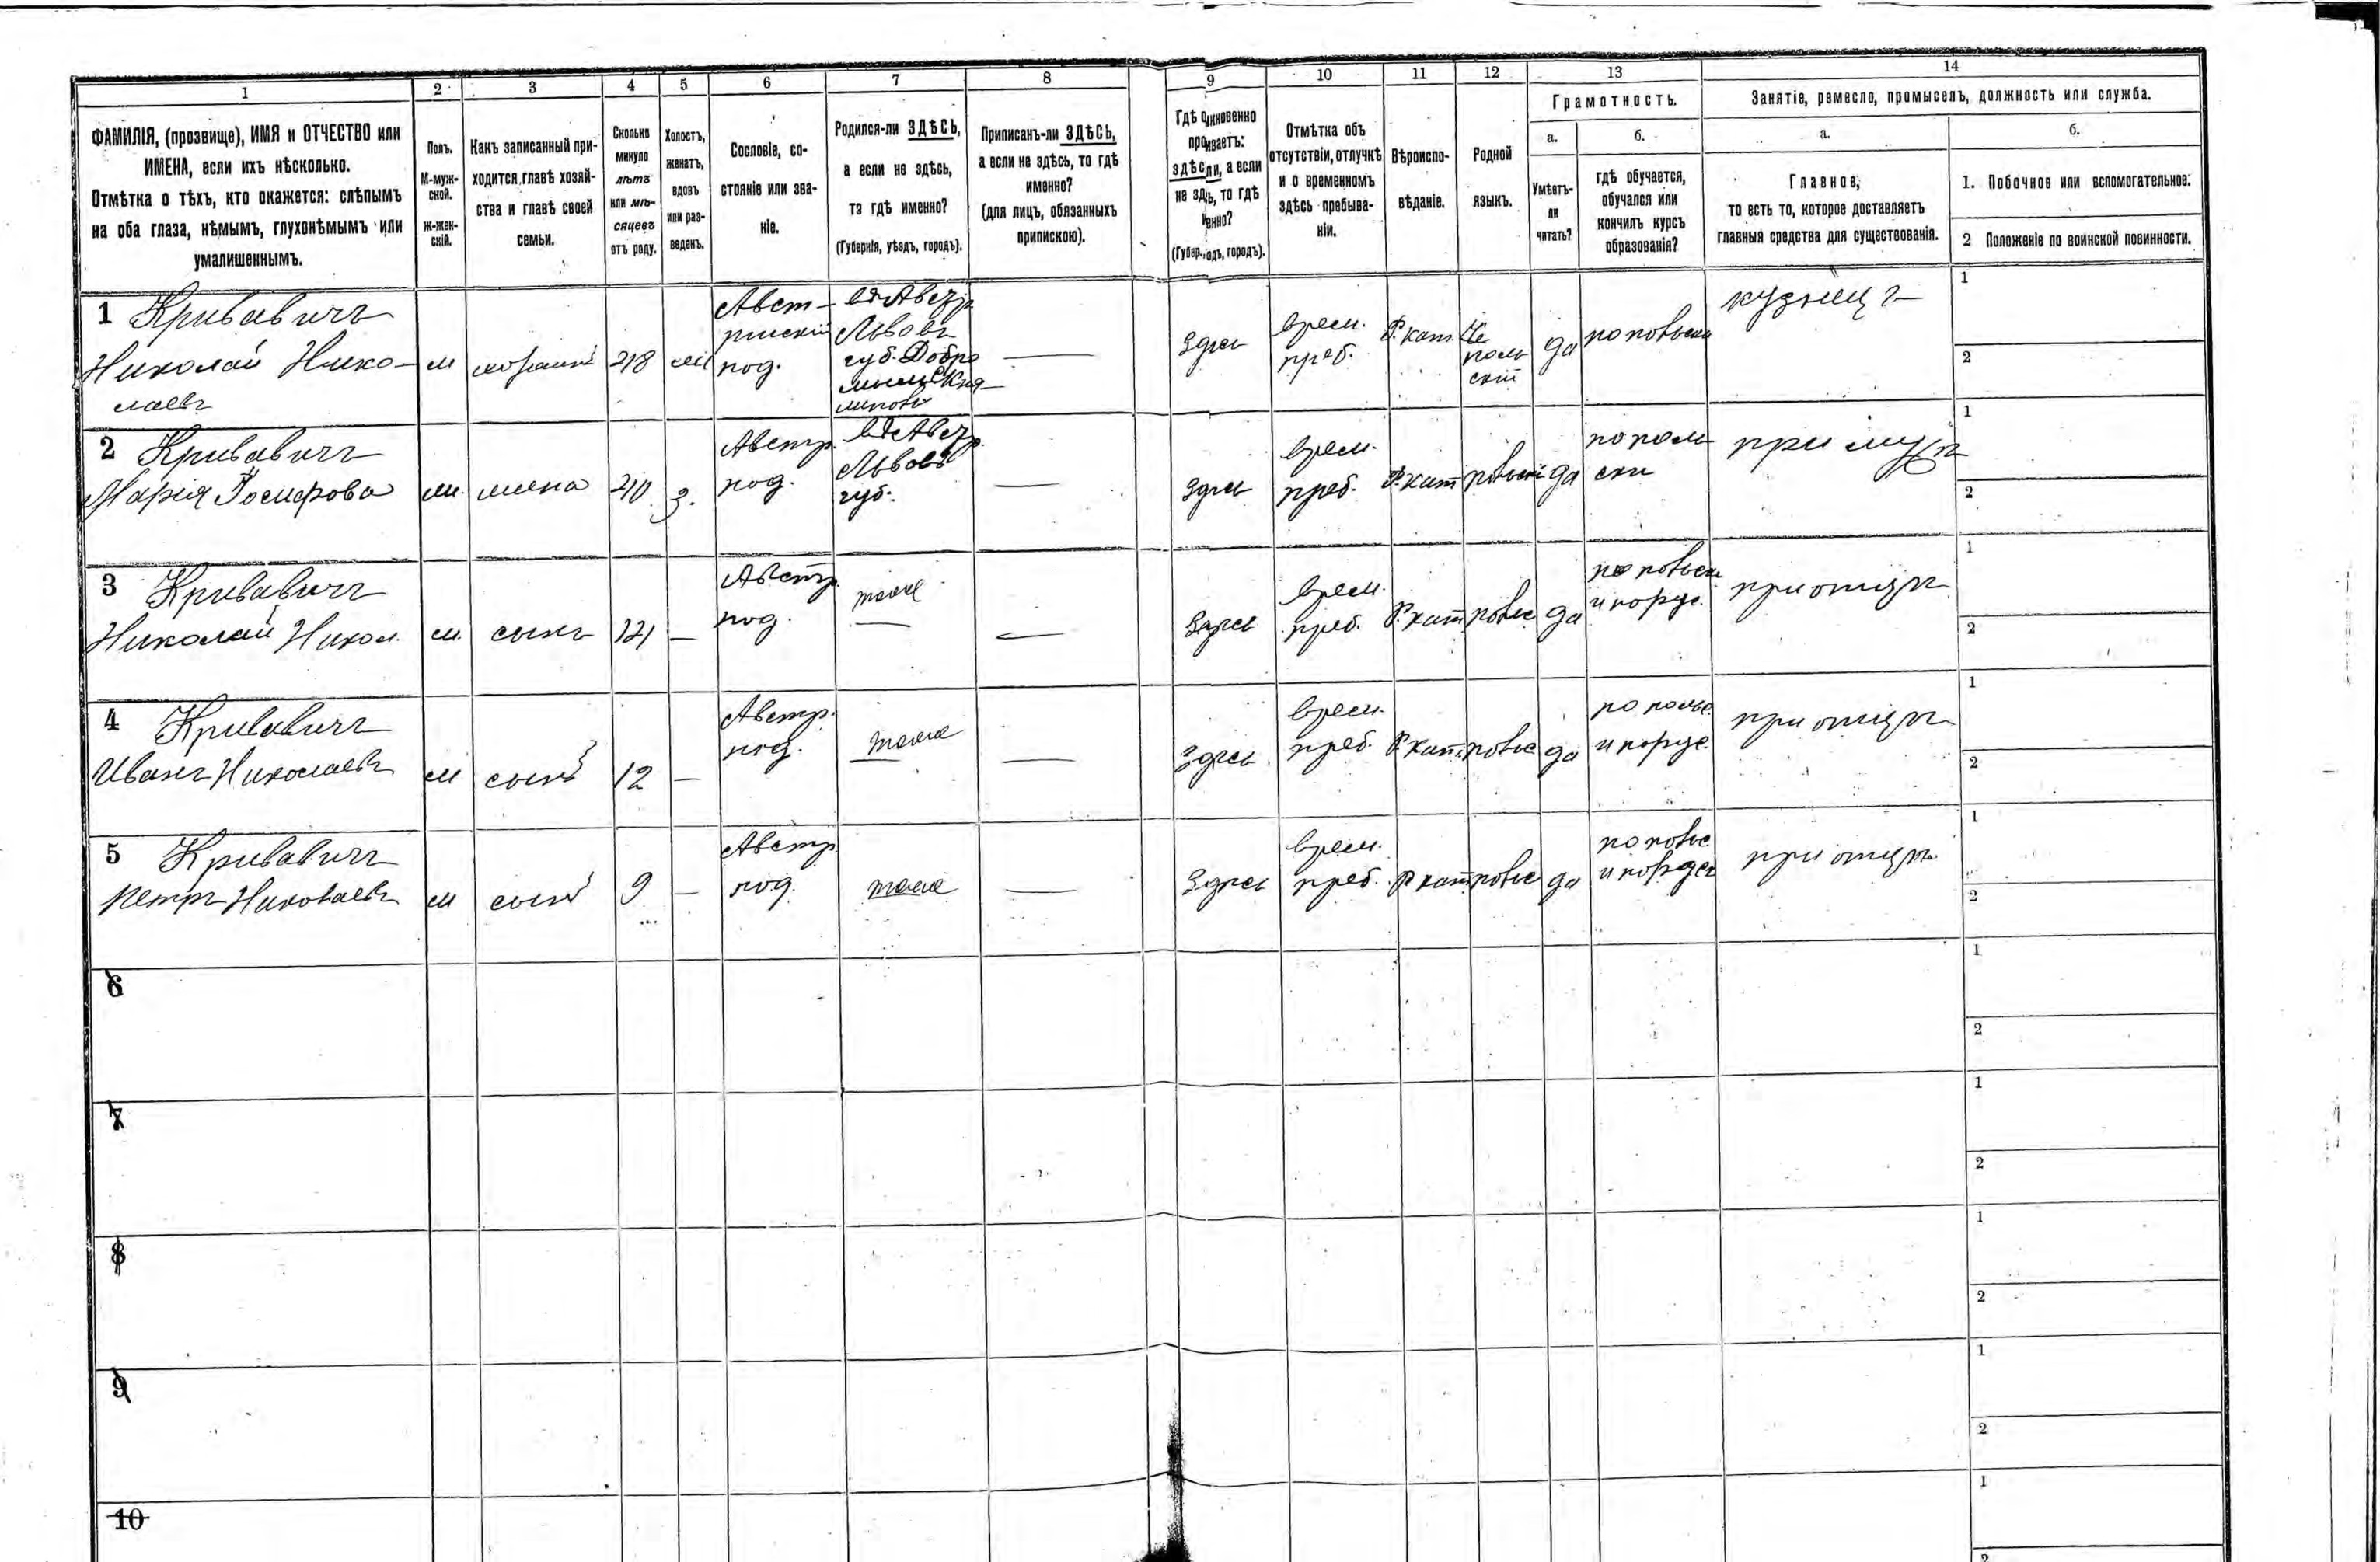 1 2 3 4 5 6 7 8 9 10 11 12 13 14
ФАМИЛІЯ, (прозвище), ИМЯ и ОТЧЕСТВО или
ИМЕНА, если ихъ нѣсколько.
Отмѣтка о тѣхъ, кто окажется: слѣпымъ
на оба глаза, нѣмымъ, глухонѣмымъ или
умалишеннымъ.
Полъ.
М-муж-
ской.
Ж-жен-
скій.
Какъ записанный при-
ходится главѣ хозяй-
ства и главѣ своей
семьи.
Сколько
минуло
лѣтъ
или мѣ-
сяцевъ
отъ роду.
Холостъ,
женатъ,
вдовъ
или раз-
веденъ.
Сословіе, со-
стояніе или зва-
ніе.
Родился-ли ЗДѢСЬ,
а если не здѣсь,
то гдѣ именно?
(Губернія, уѣздъ, городъ).
Приписанъ-ли ЗДѢСЬ,
а если не здѣсь, то гдѣ
именно?
(для лицъ, обязанныхъ
припискою).
Гдѣ
здѣсь ли, а если
не здѣсь, то гдѣ
Отмѣтка объ
отсутствіи, отлучкѣ
и о временномъ
здѣсь пребыва-
ніи.
Вѣроиспо-
вѣданіе.
Родной
языкъ.
Грамотность.
а.
Умѣетъ-
ли
читать?
б.
гдѣ обучается,
обучался или
кончилъ курсъ
образованія?
Занятіе, ремесло, промыселъ, должность или служба.
а.
Главное,
то есть то, которое доставляетъ
главныя средства для существованія.
б.
1. Побочное или вспомогательное.
2 Положеніе по воинской повинности.
1 Кривавичъ
Николай Нико-
лаевъ
м
хозяинъ
48
Авст-
рийскій
под.
Львовъ
губ. Добро
здѣсь
врем.
преб.
Р. кат.
поль
скій
да
попольски
кузнецъ
1
2
2 Кривавичъ
Марія Іосифова
жена
40
з.
Австр.
под.
Львовъ
губ.
здѣсь
врем.
преб.
Р. кат
польскій
да
по поль
ски
при мужѣ
1
2
3 Кривавичъ
Николай Никол.
м
сынъ
—
Австр.
под.
тоже
—
здѣсь
врем.
преб.
Р. кат
польс
да
по польски
и порус.
при отцѣ
1
2
4 Кривавичъ
Иванъ Николаевъ
м
сынъ
12
—
Австр.
под.
тоже
—
здѣсь
врем.
преб.
Р. кат
польс
да
по польс.
и порус.
при отцѣ
1
2
5 Кривавичъ
Петръ Николаевъ
м
сынъ
9
—
Австр.
под.
тоже
—
здѣсь
врем.
преб.
Р кат
польс
да
по польс
при отцѣ
1
2
6
1
2
7
1
2
8
1
2
9
1
2
10
1
2